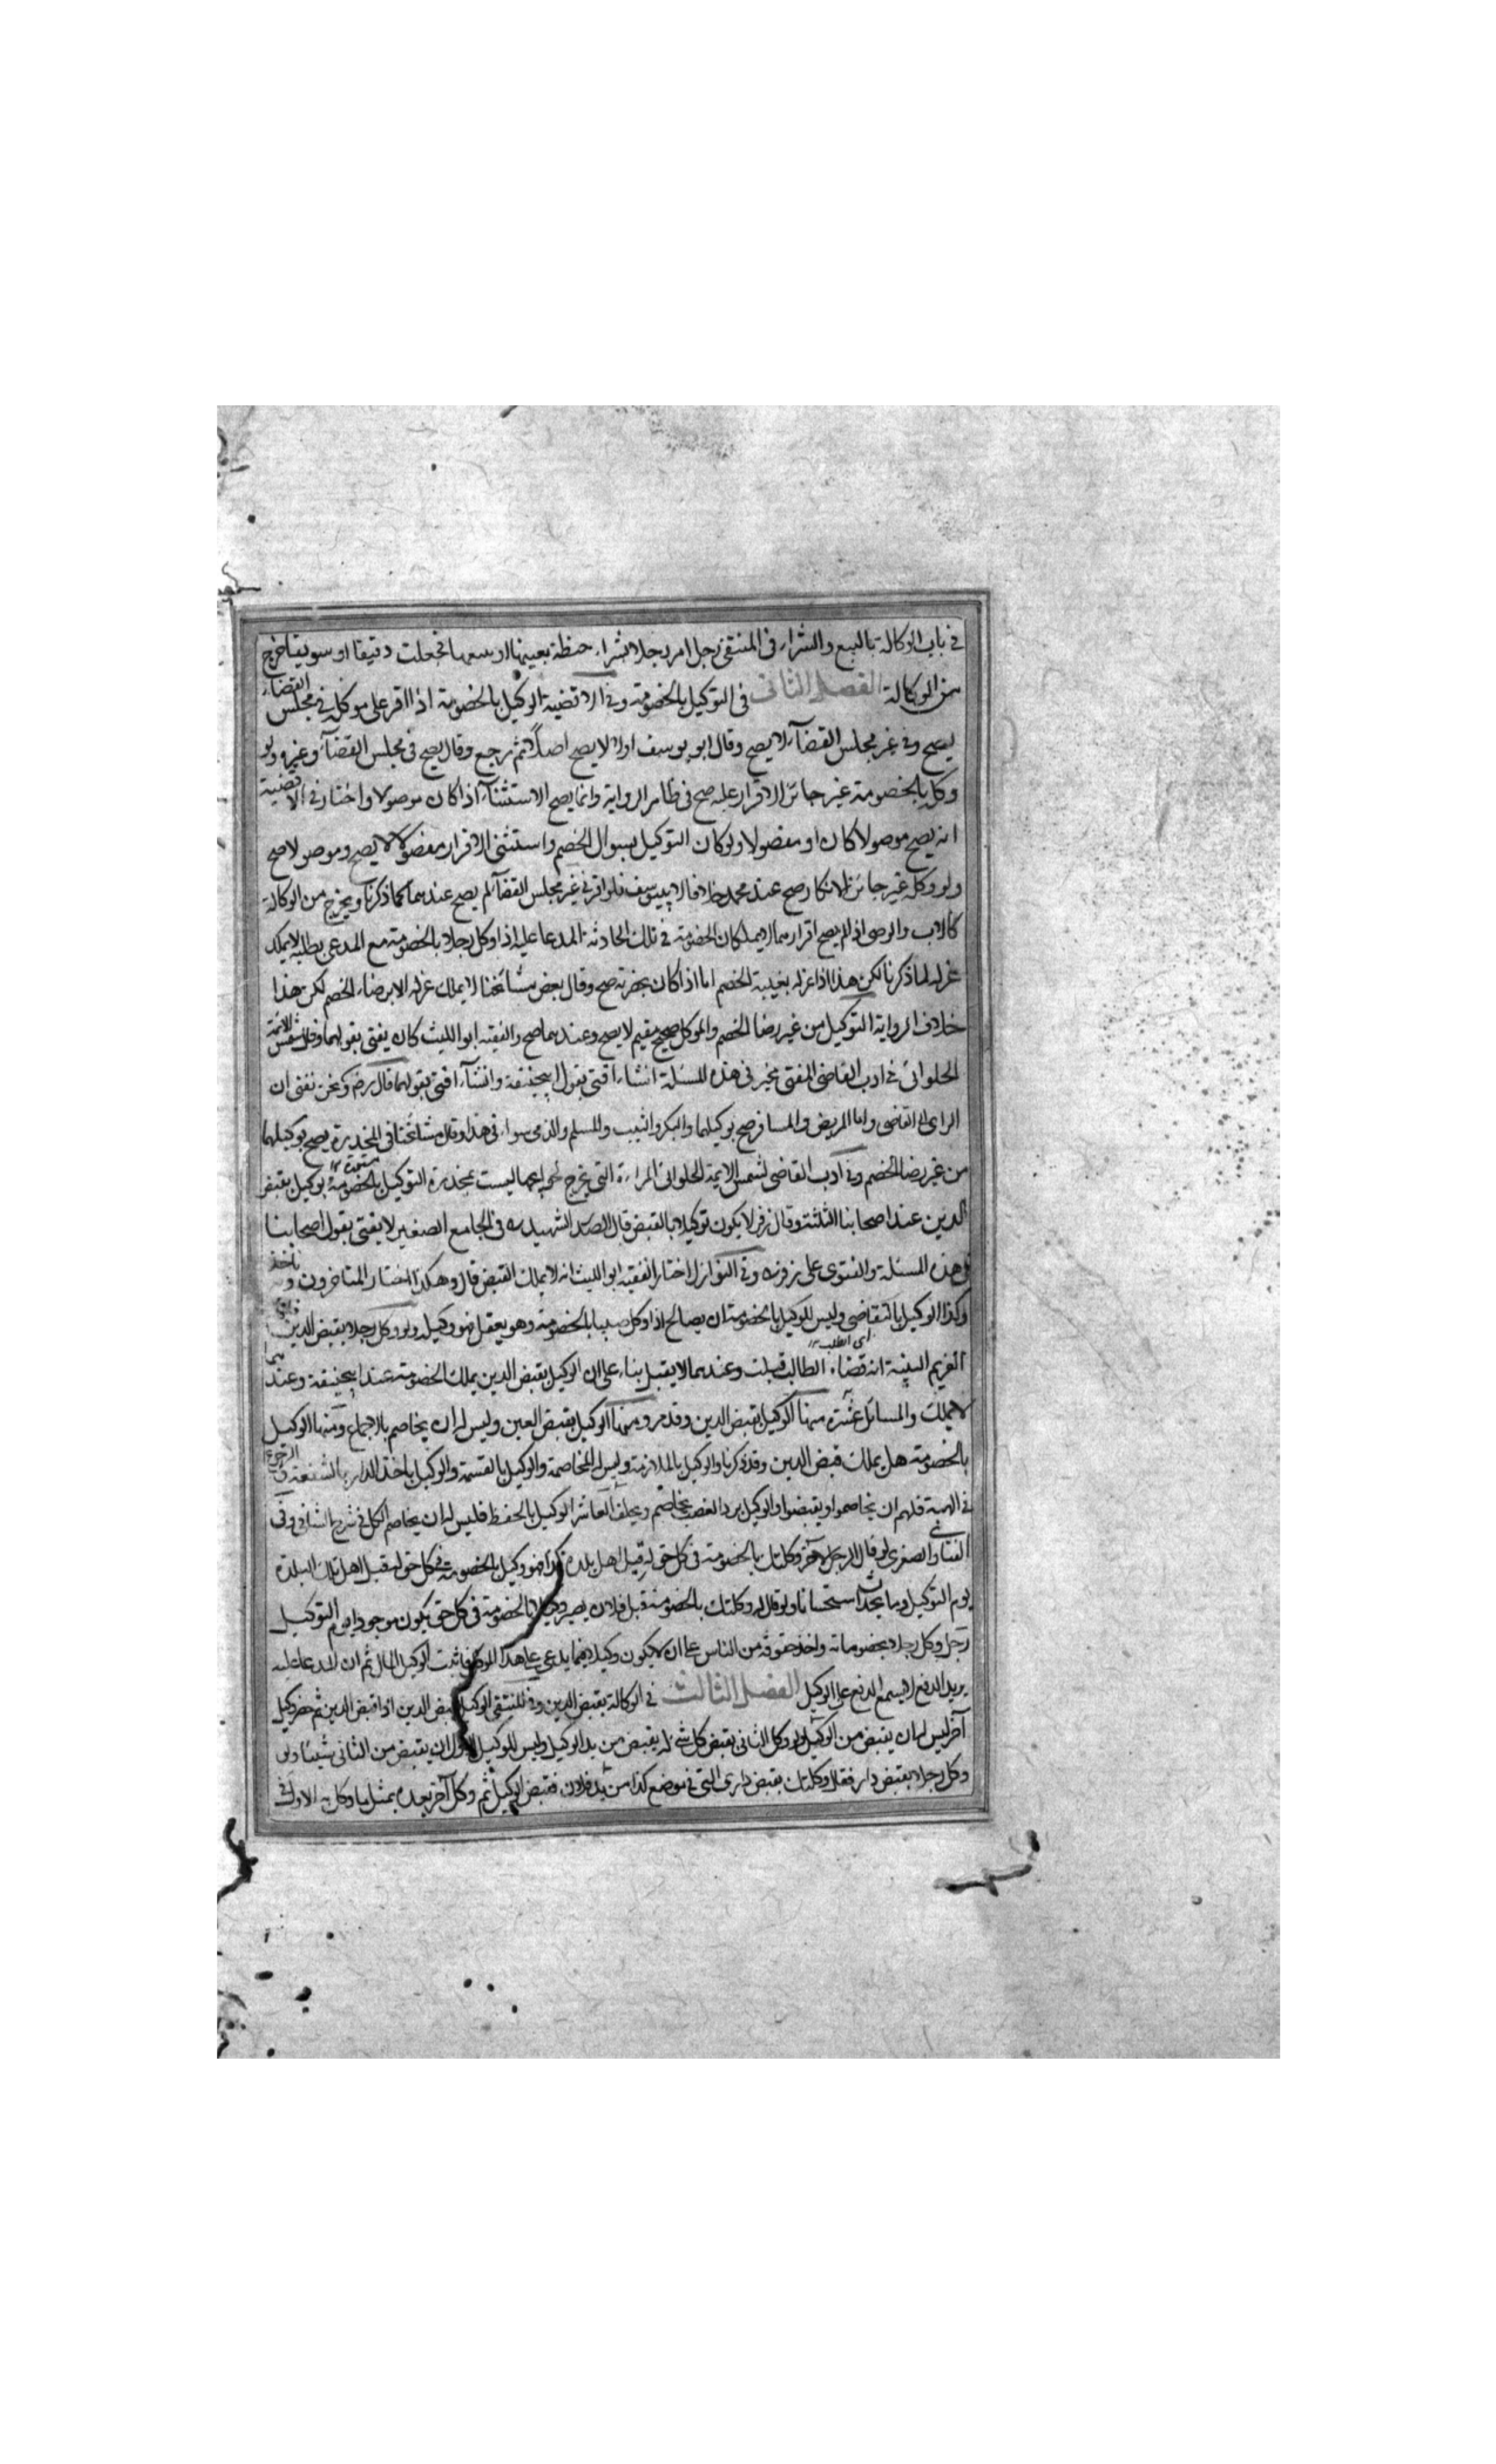 في باب الوكالة بالبيع والشراء في المنتقى رجل امر رجلا بشراء حنطة بعينها او بيعها فجعلت دقيقا او سويقا خرج
من الوكالة الفصل الثاني في التوكيل بالخصومة وفي الاقضية الوكيل بالخصومة اذا اقر على موكله في مجلس القضاء
يصح وفي غير مجلس القضاء لا يصح وقال ابو يوسف اولا لا يصح اصلا ثم رجع وقال يصح في مجلس القضاء وغيره ولو
وكله بالخصومة غير جائز الاقرار عليه صح في ظاهر الرواية وانما يصح الاستثناء اذا كان موصولا واختار في الاقضية
انه يصح موصولا كان او مفصولا ولو كان التوكيل بسوال الخصم واستثنى الاقرار مفصولا لا يصح وموصولا صح
ولو وكله غير جائز الانكار صح عند محمد خلافا لابي يوسف فلو اقر في غير مجلس القضاء لم يصح عندهما كما ذكرنا ويخرج من الوكالة
كالاب والوصي اذا لم يصح اقرارهما لا يملكان الخصومة في تلك الحادثة المدعا عليه اذا وكل رجلا بالخصومة مع المدعي بطلبه لا يملك
عزله لما ذكرنا لكن هذا اذا عزله بغيبة الخصم اما اذا كان بحضرته صح وقال بعض مشائخنا لا يملك عزله الا برضاء الخصم لكن هذا
خلاف الرواية التوكيل من غير رضا الخصم والموكل صحيح مقيم لا يصح وعندهما صح والفقيه ابو الليث كان يفتي بقولهما وقال شمس الائمة
الحلواني في ادب القاضي المفتي مخير في هذه المسئلة ان شاء افتى بقول ابيحنيفة وان شاء افتى بقولهما قال رض ونحن نفتي ان
الراي الى القاضي واما المريض والمسافر صح توكيلهما والبكر والثيب والمسلم والذمي سواء في هذا وقال مشائخنا في المخدرة يصح توكيلهما
من غير رضا الخصم وفي ادب القاضي لشمس الايمة الحلواني المراءة التي تخرج لحوايجها ليست بمخدرة التوكيل بالخصومة توكيل بقبض
الدين عند اصحابنا الثلثة وقال زفر لا يكون توكيلا بالقبض قال الصدر الشهيد ره في الجامع الصغير لا يفتى بقول اصحابنا
في هذه المسئلة والفتوى على زفر ره وفي النوازل اختار الفقيه ابو الليث انه لا يملك القبض قال وهكذا اختار المتاخرون و ناخذ
وكذا الوكيل بالتقاضي وليس للوكيل بالخصومة ان يصالح اذا وكل صبيا بالخصومة وهو يعقل فهو وكيله ولو وكل رجلا بقبض الدين
اى الطلب ١٢
الغريم البينة انه قضاء الطالب قبلت وعندهما لا يقبل بناء على ان الوكيل بقبض الدين يملك الخصومة عند ابيحنيفة وعندهما
لا يملك والمسائل عشرة منها الوكيل بقبض الدين وقد مر ومنها الوكيل بقبض العين وليس له ان يخاصم بالاجماع ومنها الوكيل
بالخصومة هل يملك قبض الدين وقد ذكرنا والوكيل بالملازمة وليس له المخاصمة والوكيل بالقسمة والوكيل باخذ الدار بالشفعة الرجوع
في الهبة فلهم ان يخاصموا ويقبضوا والوكيل برد العيب يخاصم ويحلف العاشر الوكيل بالحفظ فليس له ان يخاصم الكل في شرح الشافي وفي
الفتاوى الصغرى لو قال الرجل لاخر وكلتك بالخصومة في كل حق له قبل اهل بلدة كذا فهو وكيل بالخصومة في كل حق له قبل اهل تلك البلدة
يوم التوكيل وما يحدث استحسانا ولو قال له وكلتك بالخصومة قبل فلان يصير وكيلا بالخصومة في كل حق يكون موجودا يوم التوكيل
رجل وكل رجلا بخصوماته واخذ حقوقه من الناس على ان لا يكون وكيلا فيما يدعى على هذا الموكل فاثبت الوكيل المال ثم ان المدعا عليه
يريد الدفع لا يسمع الدفع على الوكيل الفصل الثالث في الوكالة بقبض الدين وفي المنتقى الوكيل بقبض الدين اذا قبض الدين ثم حضر وكيل
آخر ليس له ان يقبض من الوكيل ولو وكل الثاني بقبض كل شيء له يقبض من يد الوكيل وليس للوكيل الاول ان يقبض من الثاني شيئا ولو
وكل رجلا بقبض دار فقال وكلتك بقبض داري التي في موضع كذا من يد فلان فقبض الوكيل ثم وكل آخر بعده بمثل ما وكل به الاول